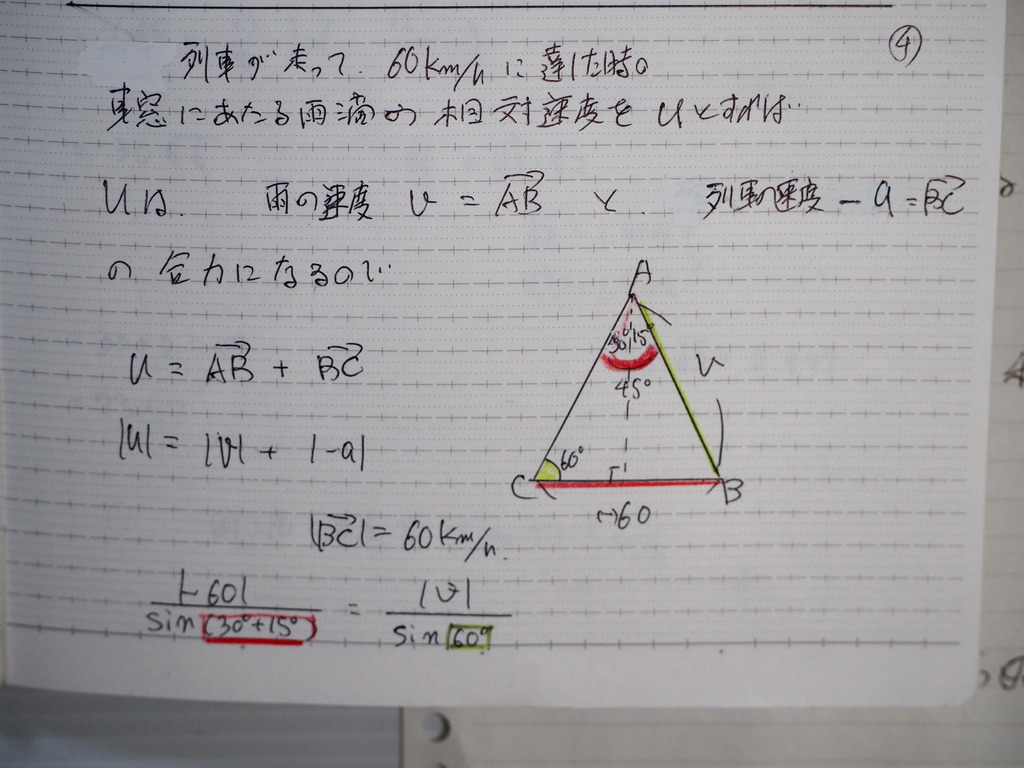 ④
列車が走って、60km/hに達した時。
車窓にあたる雨滴の相対速度をuとすれば…
uは、雨の速度 v = AB と、列車の速度 -a = BC
の合力になるので…
u = AB + BC
|u| = |v| + |-a|
|BC| = 60km/h.
|-60| / sin(30°+15°) = |v| / sin60°
A
30° 15°
45°
v
60°
C B
(-)60